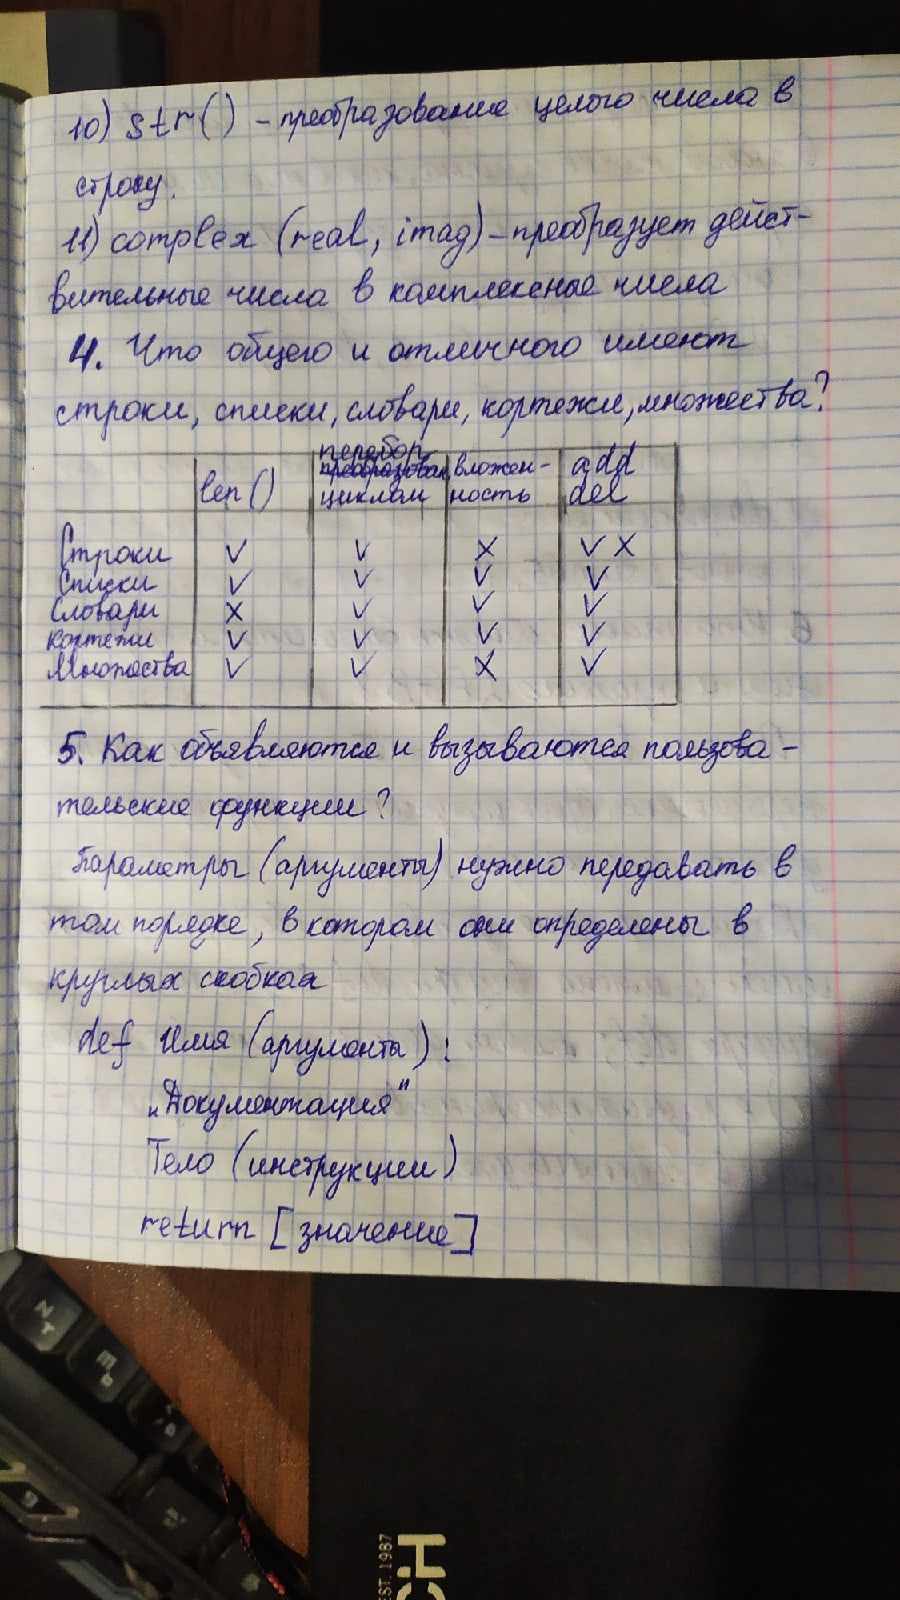 10) str() – преобразование целого числа в
строку.
11) complex (real, imag) – преобразует дейст-
вительные числа в комплексные числа
4. Что общего и отличного имеют
строки, списки, словари, кортежи, множества?
len() перебор циклом вложен-ность add del
Строки ✓ ✓ ✗ ✓ ✗
Списки ✓ ✓ ✓ ✓
Словари ✗ ✓ ✓ ✓
Кортежи ✓ ✓ ✓ ✓
Множества ✓ ✓ ✗ ✓
5. Как объявляются и вызываются пользова-
тельские функции?
Параметры (аргументы) нужно передавать в
том порядке, в котором они определены в
круглых скобках
def Имя (аргументы):
„Документация"
Тело (инструкции)
return [значение]
EST. 1987
CH